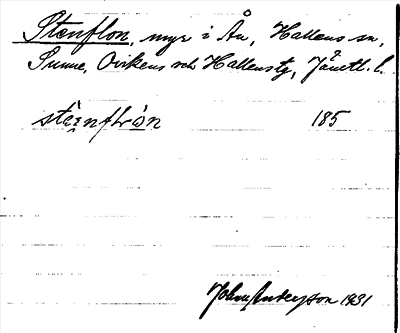 Stenflon, myr i Ån, Hallens sn,
Sunne, Ovikens och Hallens tg, Jämtl. l.
stæ̀nflòn 185
John Anderson 1931